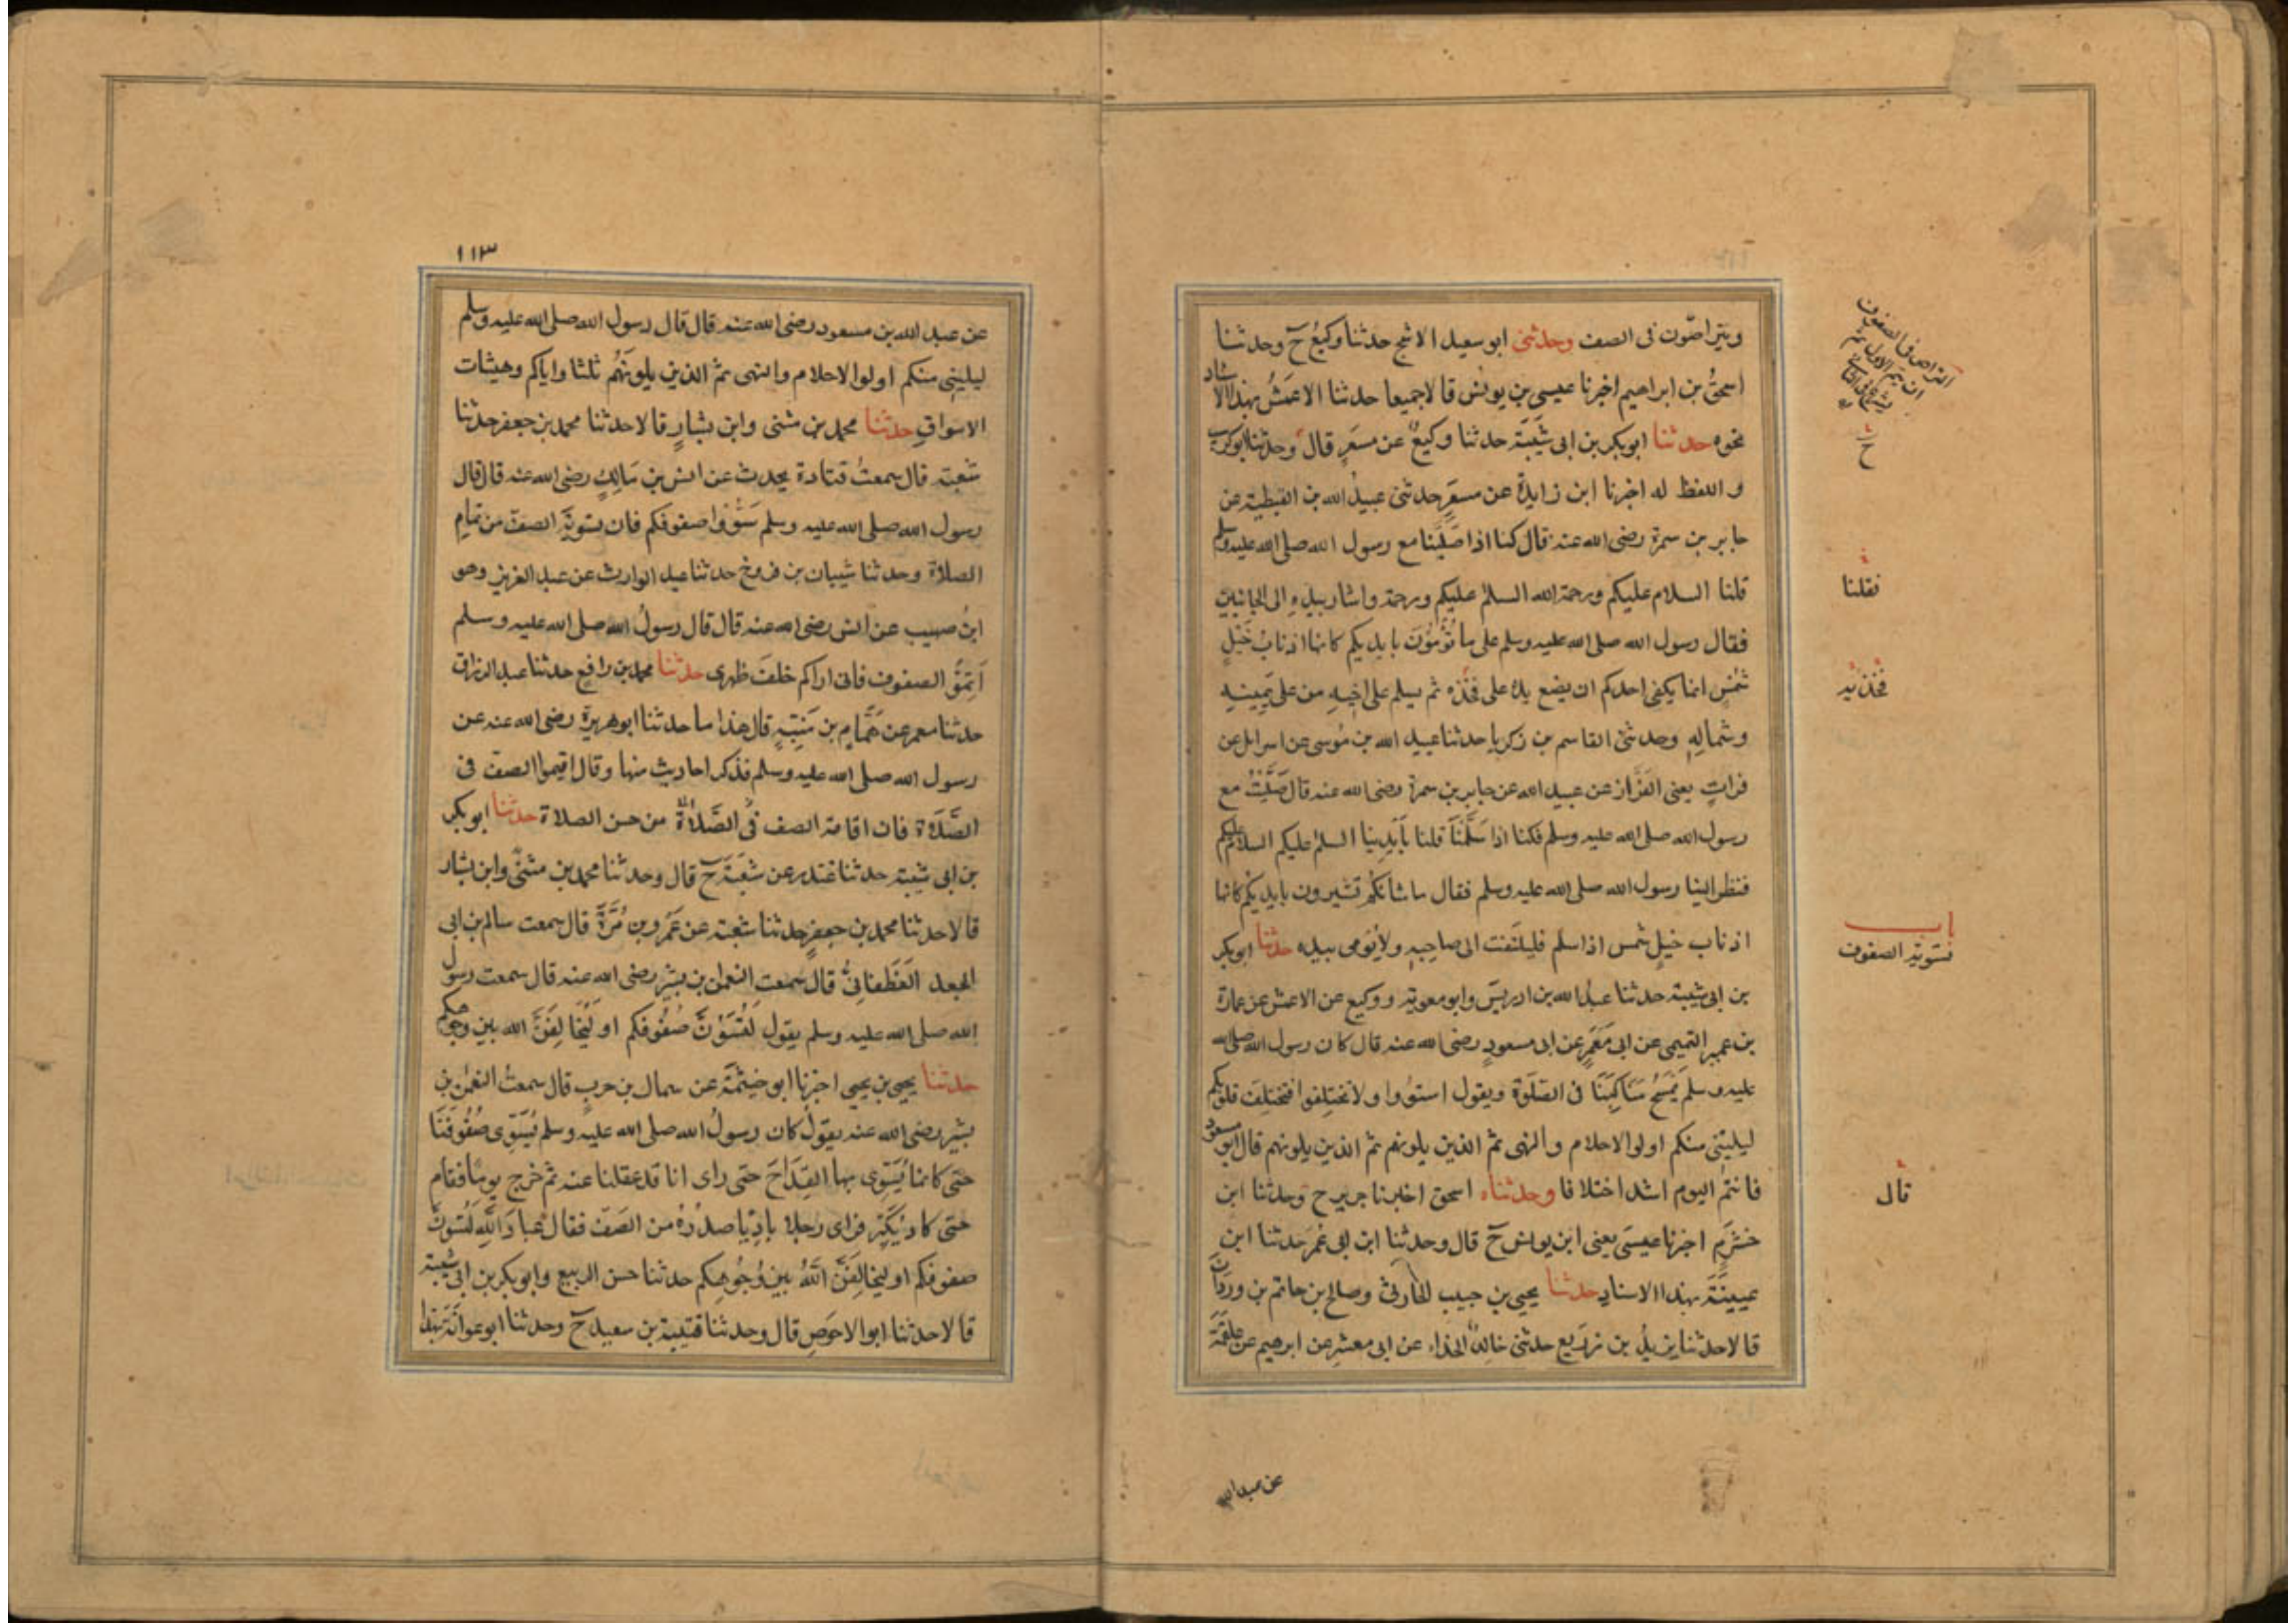 ويتراصّون فى الصف وحدثنى ابو سعيد الاشج حدثنا وكيعُ ح وحدثنا
اسحٰقُ بن ابراهيم اخبرنا عيسى بن يونس قالا جميعا حدثنا الاعمَشُ بهذا الاسناد
نحوه حدثنا ابوبكر بن ابى شَيبَة حدثنا وكيعٌ عن مسعَرٍ قال وحدثنا ابوكريب
و اللفظ له اخبرنا ابن زايدة عن مسعَرٍ حدثنى عبيدُ الله بن القبطية عن
جابر بن سمرة رضى الله عنه قال كنا اذا صَلَّينا مع رسول الله صلى الله عليه وسلم
قلنا السلام عليكم ورحمة الله السلم عليكم ورحمة واشار بيدهِ الى الجانبين
فقال رسول الله صلى الله عليه وسلم على ما تُؤْمُونَ بايديكم كانها اذنابُ خَيْلٍ
شُمْسٍ انما يكفى احدكم ان يضع يده على فَخْذه ثم يسلم على اخيهِ من على يَمِينِه
وشمالِهِ وحدثنى القاسم بن زكريا حدثنا عبيد الله بن مُوسى عن اسرايل عن
فراتٍ يعنى القَزَّاز عن عبيد الله عن جابر بن سمرة رضى الله عنه قال صَلَّيْتُ مع
رسول الله صلى الله عليه وسلم فكنا اذا سَلَّمْنَا قلنا بأَيْدِينا السلم عليكم السلام عليكم
فنظر الينا رسول الله صلى الله عليه وسلم فقال ما شانكُم تشيرون بايديكُم كانها
اذناب خيلٍ شمس اذا سلم فليلتفت الى صاحِبِهِ ولا يُومى بيده حدثنا ابوبكر
بن ابى شيبة حدثنا عبدُ الله بن ادريسَ وابو معوية ووكيع عن الاعمش عن عمارة
بن عمير التيمى عن ابى مَعْمَرٍ عن ابى مسعودٍ رضى الله عنه قال كان رسول الله صلى الله
عليه وسلم يَمْسَحُ مَنَاكِبَنَا فى الصَّلوٰة ويقول استوُوا ولا تختلِفوا فتختلِفَ قلوبكم
ليلِيَنِّى منكم اولوا الاحلام والنهى ثمّ الذين يلونهم ثمّ الذين يلونهم قال ابو مسعود
فانتم اليوم اشد اختلافا وحدثناه اسحق اخبرنا جرير ح وحدثنا ابن
خشرمٍ اخبرنا عيسَى يعنى ابن يونس ح قال وحدثنا ابن ابى عُمَرَ حدثنا ابن
عيينَةَ بهذا الاسنادِ حدثنا يحيى بن حبيب الحارثى وصالح بن حاتم بن وردَان
قالا حدثنا يزيدُ بن زريع حدثنى خالدٌ الحذاء عن ابى معشرٍ عن ابرهيم عن علقَمَةَ
التراص فى الصفوف
ان يتم الاول ثم
ح
فقلنا
فخذيه
باب
تسوية الصفوف
قال
عن عبدالله
١١٣
عن عبد الله بن مسعود رضى الله عنه قال قال رسول الله صلى الله عليه وسلم
ليلينى منكم اولوا الاحلام والنهى ثم الذين يلونَهُم ثلثا واياكم وهيشات
الاسواقِ حدثنا محمد بن مثنى وابن بشارٍ قالا حدثنا محمد بن جعفر حدثنا
شعبة قال سمعتُ قتادة يحدث عن انس بن مَالِكٍ رضى الله عنه قال قال
رسول الله صلى الله عليه وسلم سَوُّوا صفوفكم فان تسويَةَ الصفّ من تمامِ
الصلاة وحدثنا شيبان بن فروخ حدثنا عبد الوارث عن عبد العزيز وهو
ابنُ صهيب عن انس رضى الله عنه قال قال رسولُ الله صلى الله عليه وسلم
اَتِمُّوْا الصفوف فانى اراكم خلفَ ظهرى حدثنا محمد بن رافع حدثنا عبد الرزاق
حدثنا معمر عن هَمَّامِ بن مُنَبِّهٍ قال هٰذا ما حدثنا ابو هريرة رضى الله عنه عن
رسول الله صلى الله عليه وسلم فذكر احاديث منها وقال اقيموا الصفّ فى
الصَّلاة فان اقامة الصف فى الصَّلاَةِ من حسن الصلاة حدثنا ابوبكر
بن ابى شيبة حدثنا غندر عن شعبَة ح قال وحدثنا محمد بن مثنًّى وابن بشار
قالا حدثنا محمد بن جعفرٍ حدثنا شعبَة عن عَمْرِو بن مُرَّةَ قال سمعت سالم بن ابى
الجعد الغَطَفانِىَّ قال سمعت النعمٰن بن بشيرٍ رضى الله عنه قال سمعت رسول
الله صلى الله عليه وسلم يقول لَتُسَوُّنَّ صُفُوفَكم او لَيُخَالِفَنَّ الله بين وجوهكم
حدثنا يحيى بن يحيى اخبرنا ابو خيثمَةَ عن سماك بن حربٍ قال سمعتُ النعمٰن بن
بشيرٍ رضى الله عنه يقول كان رسولُ الله صلى الله عليه وسلم يُسَوِّى صُفُوفَنَا
حتى كانما يُسَوِّى بها القِدَاحَ حتى راى انا قد عقلنا عنه ثم خرج يوما فقام
حتى كاد يُكَبِّر فراى رجلا بادِيًا صدْرُهُ من الصَفّ فقال عبادَ اللهِ لَتُسَوُّنَّ
صفوفكم او ليخالِفَنَّ اللهُ بين وُجُوهِكم حدثنا حسن الربيع وابوبكر بن ابى شيبَة
قالا حدثنا ابوا الاحوَصِ قال وحدثنا قتيبة بن سعيد ح وحدثنا ابو عوانَة بهذا